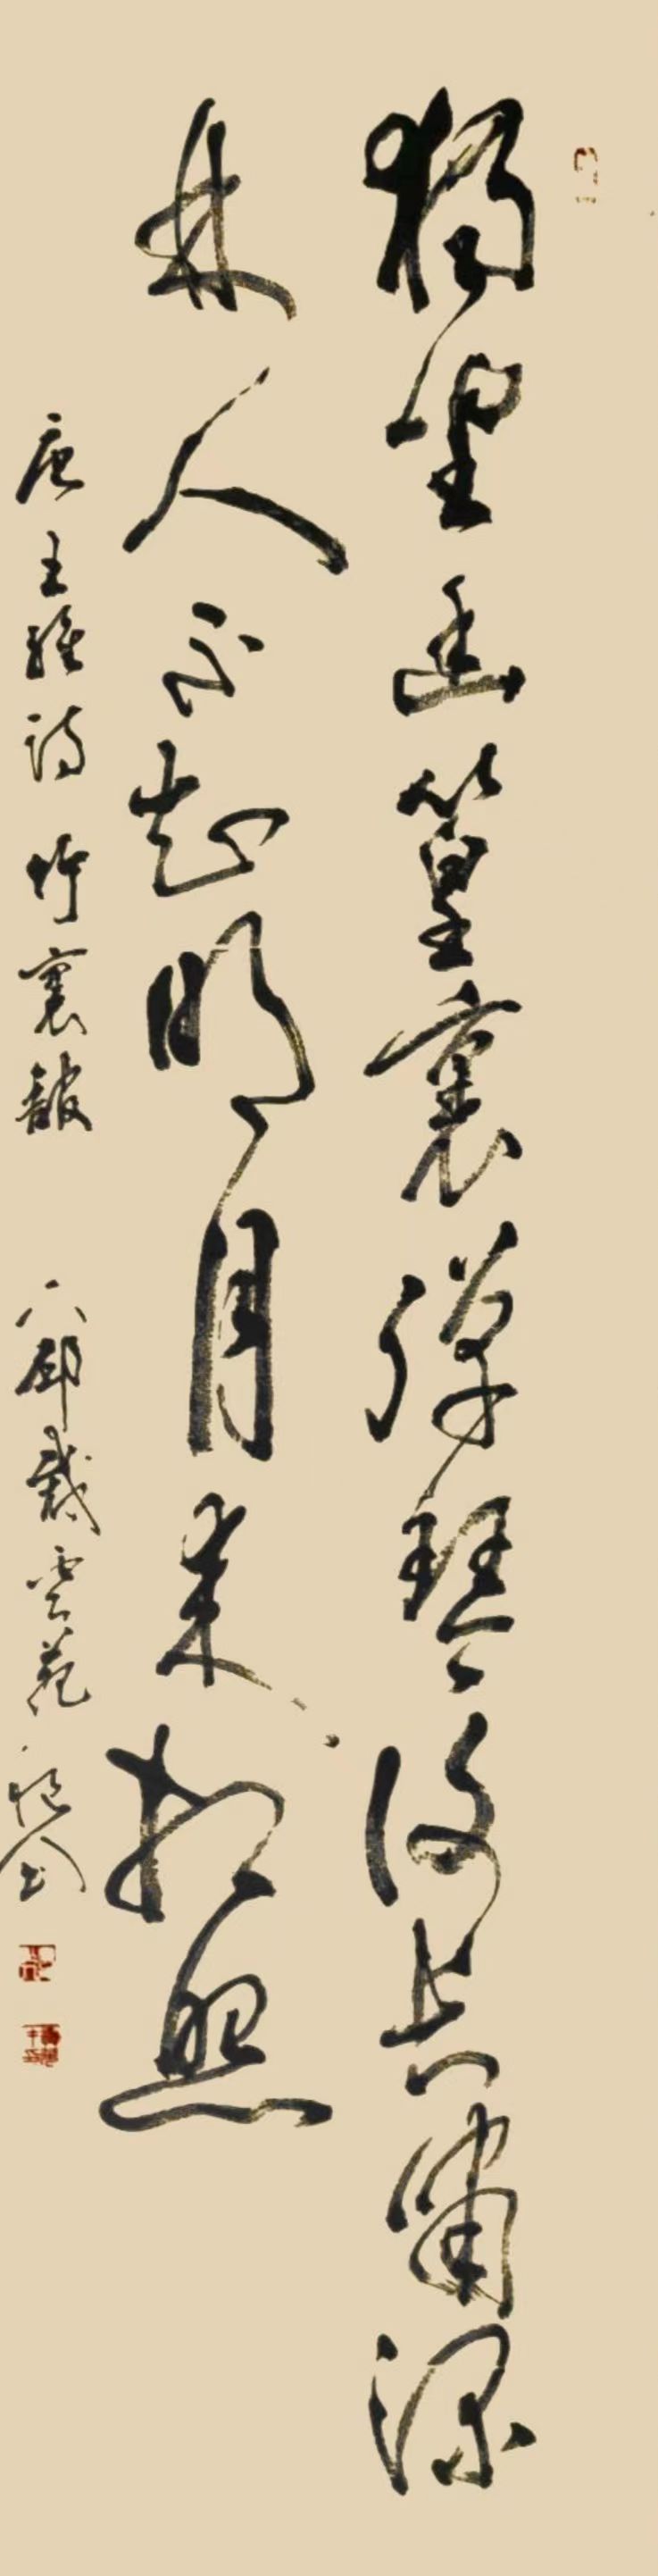 獨坐幽篁裏彈琴復長嘯深
林人不知明月来相照
唐王維詩竹裏館